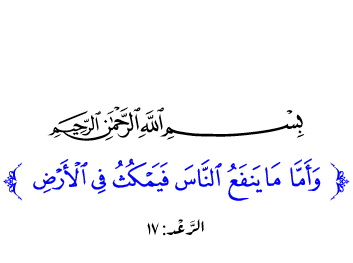 بِسْمِ ٱللَّهِ ٱلرَّحْمَٰنِ ٱلرَّحِيمِ
﴿ وَأَمَّا مَا يَنفَعُ ٱلنَّاسَ فَيَمْكُثُ فِي ٱلْأَرْضِ ﴾
الرَّعْد: ١٧